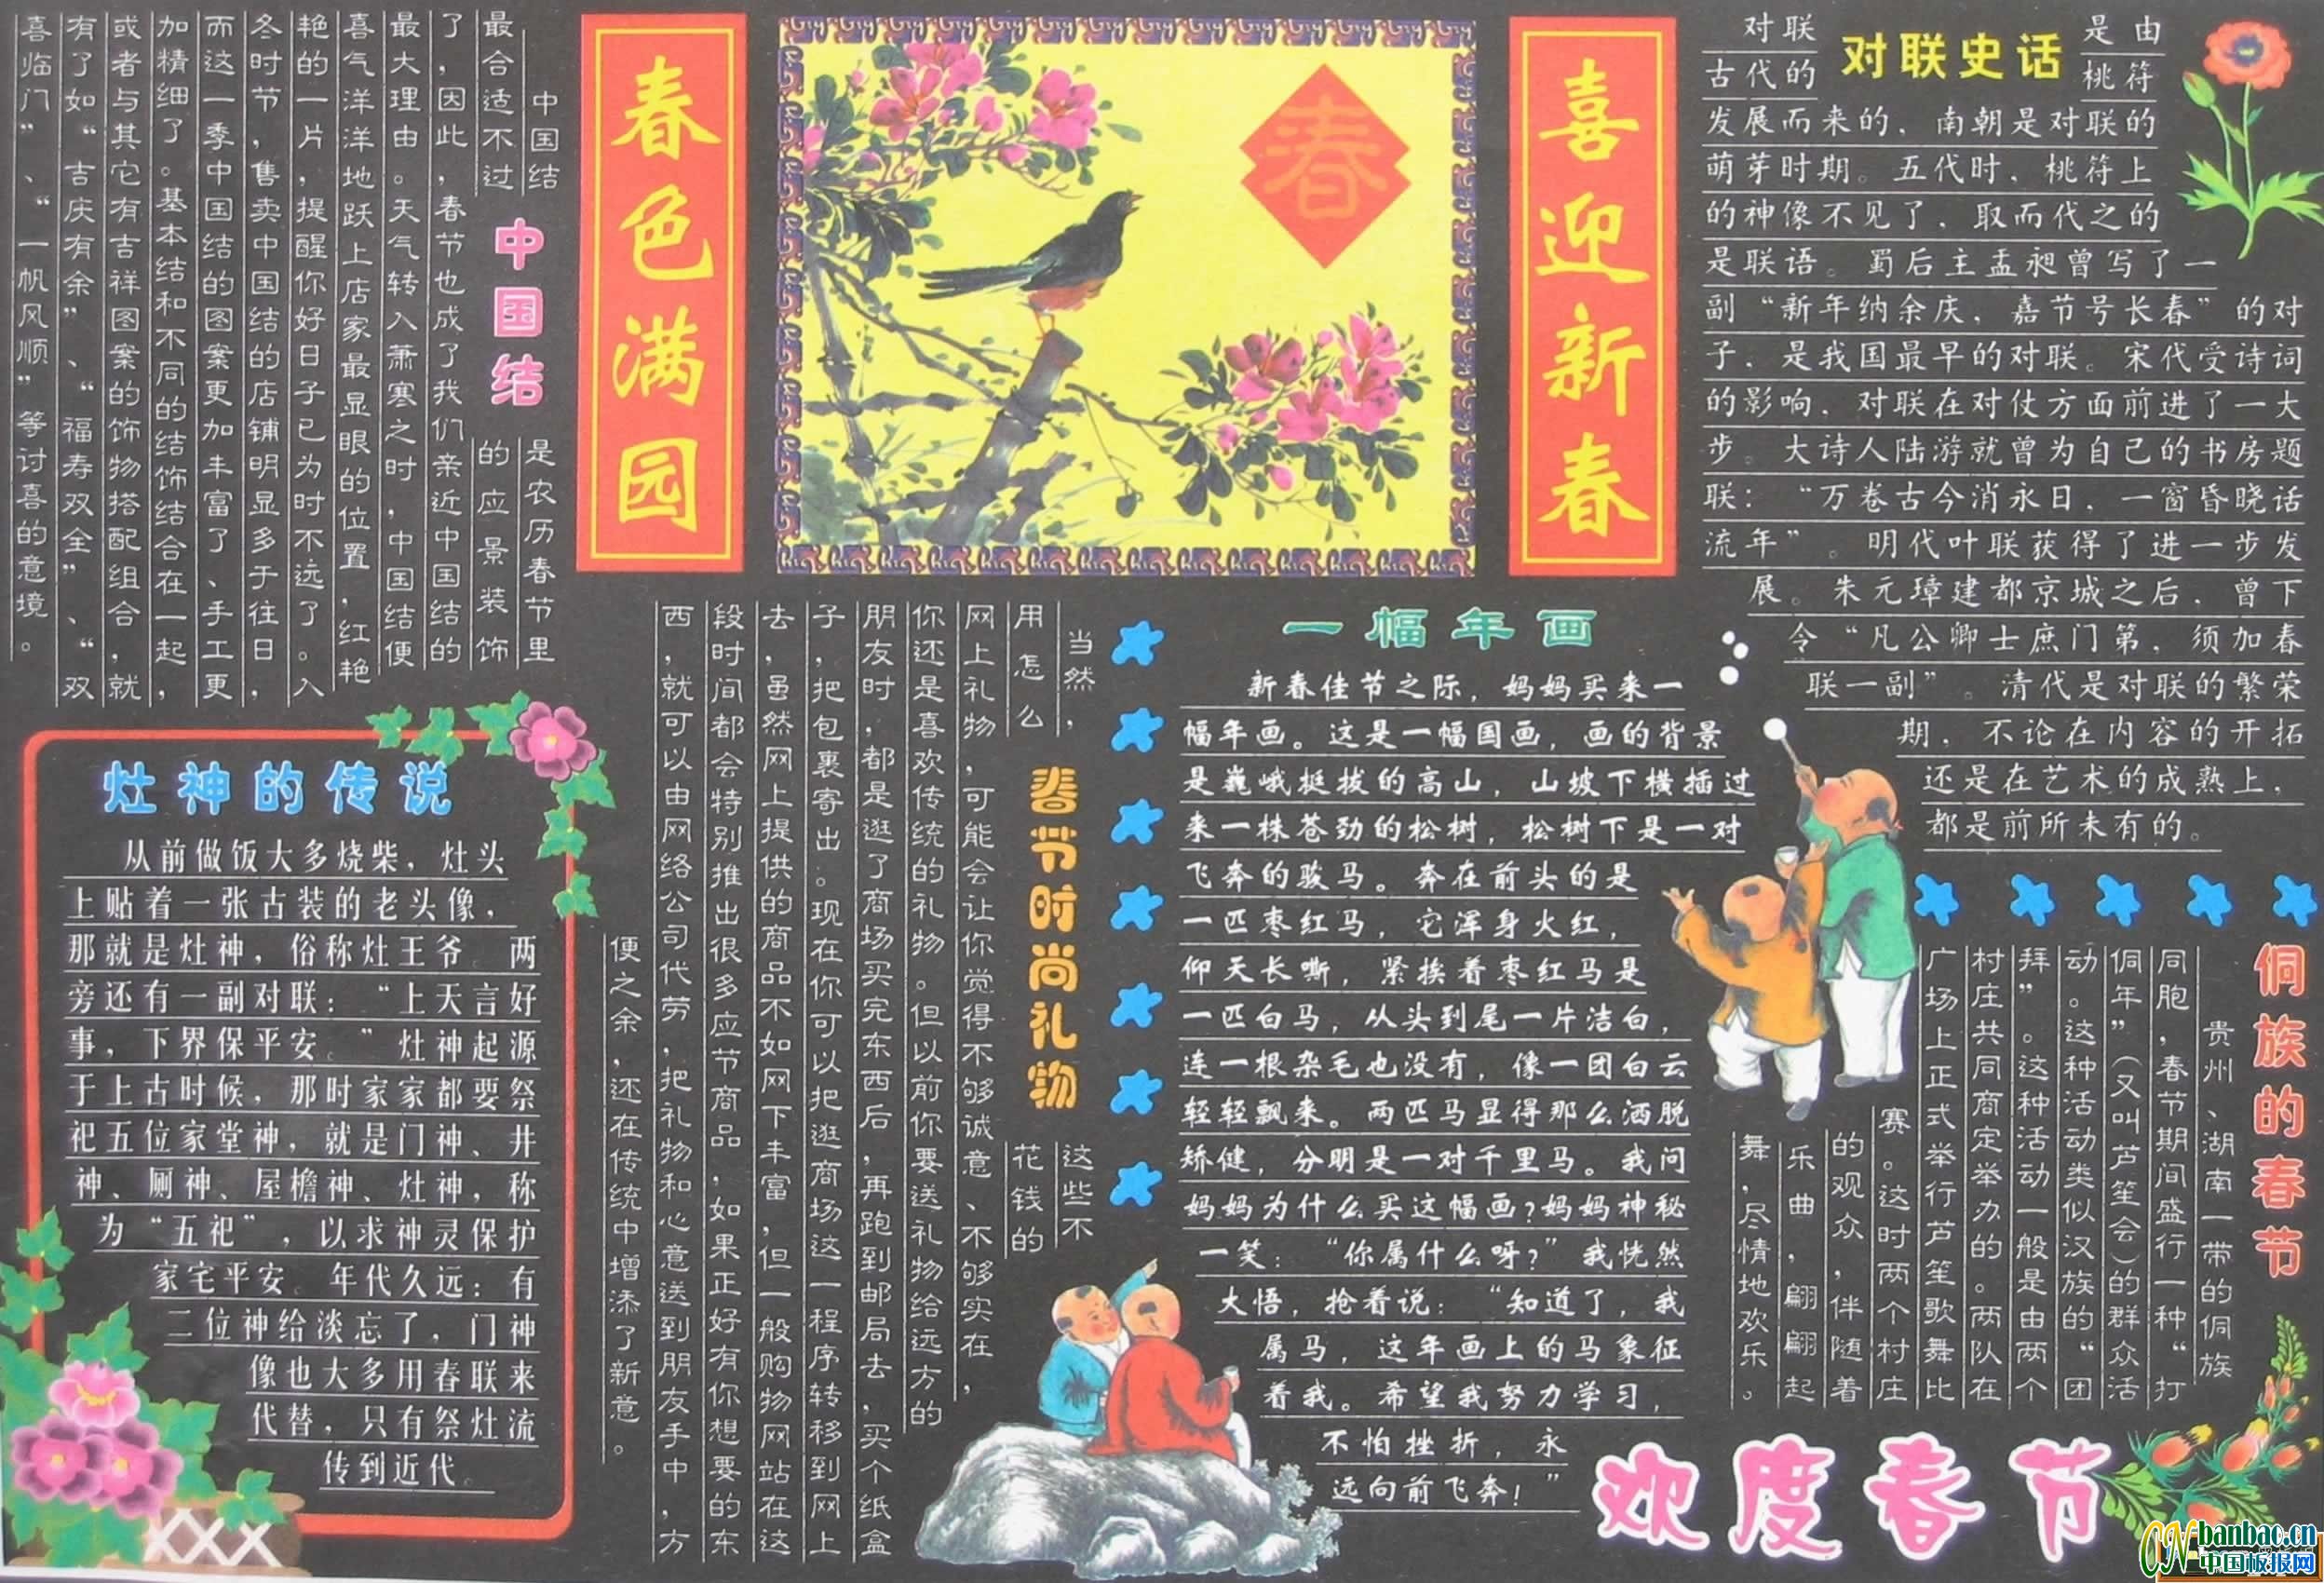 春色满园
喜迎新春
春
中国结
中国结
是农历春节里
最合适不过
的应景装饰
了，因此，春节也成了我们亲近中国结的
最大理由。天气转入萧寒之时，中国结便
喜气洋洋地跃上店家最显眼的位置，红艳
艳的一片，提醒你好日子已为时不远了。入
冬时节，售卖中国结的店铺明显多于往日，
而这一季中国结的图案更加丰富了、手工更
加精细了。基本结和不同的结饰结合在一起，
或者与其它有吉祥图案的饰物搭配组合，就
有了如“吉庆有余”、“福寿双全”、“双
喜临门”、“一帆风顺”等讨喜的意境。
对联史话
对联
是由
古代的
桃符
发展而来的，南朝是对联的
萌芽时期。五代时，桃符上
的神像不见了，取而代之的
是联语。蜀后主孟昶曾写了一
副“新年纳余庆，嘉节号长春”的对
子，是我国最早的对联。宋代受诗词
的影响，对联在对仗方面前进了一大
步。大诗人陆游就曾为自己的书房题
联：“万卷古今消永日，一窗昏晓话
流年”。明代叶联获得了进一步发
展。朱元璋建都京城之后，曾下
令“凡公卿士庶门第，须加春
联一副”。清代是对联的繁荣
期，不论在内容的开拓
还是在艺术的成熟上，
都是前所未有的。
灶神的传说
从前做饭大多烧柴，灶头
上贴着一张古装的老头像，
那就是灶神，俗称灶王爷。两
旁还有一副对联：“上天言好
事，下界保平安。”灶神起源
于上古时候，那时家家都要祭
祀五位家堂神，就是门神、井
神、厕神、屋檐神、灶神，称
为“五祀”，以求神灵保护
家宅平安。年代久远：有
二位神给淡忘了，门神
像也大多用春联来
代替，只有祭灶流
传到近代。
春节时尚礼物
当然，
这些不
用怎么
花钱的
网上礼物，可能会让你觉得不够诚意、不够实在，
你还是喜欢传统的礼物。但以前你要送礼物给远方的
朋友时，都是逛了商场买完东西后，再跑到邮局去，买个纸盒
子，把包裹寄出。现在你可以把逛商场这一程序转移到网上
去，虽然网上提供的商品不如网下丰富，但一般购物网站在这
段时间都会特别推出很多应节商品，如果正好有你想要的东
西，就可以由网络公司代劳，把礼物和心意送到朋友手中，方
便之余，还在传统中增添了新意。
一幅年画
新春佳节之际，妈妈买来一
幅年画。这是一幅国画，画的背景
是巍峨挺拔的高山，山坡下横插过
来一株苍劲的松树，松树下是一对
飞奔的骏马。奔在前头的是
一匹枣红马，它浑身火红，
仰天长嘶，紧挨着枣红马是
一匹白马，从头到尾一片洁白，
连一根杂毛也没有，像一团白云
轻轻飘来。两匹马显得那么洒脱
矫健，分明是一对千里马。我问
妈妈为什么买这幅画？妈妈神秘
一笑：“你属什么呀？”我恍然
大悟，抢着说：“知道了，我
属马，这年画上的马象征
着我。希望我努力学习，
不怕挫折，永
远向前飞奔！”
侗族的春节
贵州、湖南一带的侗族
同胞，春节期间盛行一种“打
侗年”（又叫芦笙会）的群众活
动。这种活动类似汉族的“团
拜”。这种活动一般是由两个
村庄共同商定举办的。两队在
广场上正式举行芦笙歌舞比
赛。这时两个村庄
的观众，伴随着
乐曲，翩翩起
舞，尽情地欢乐。
欢度春节
CN banbao.cn
中国板报网